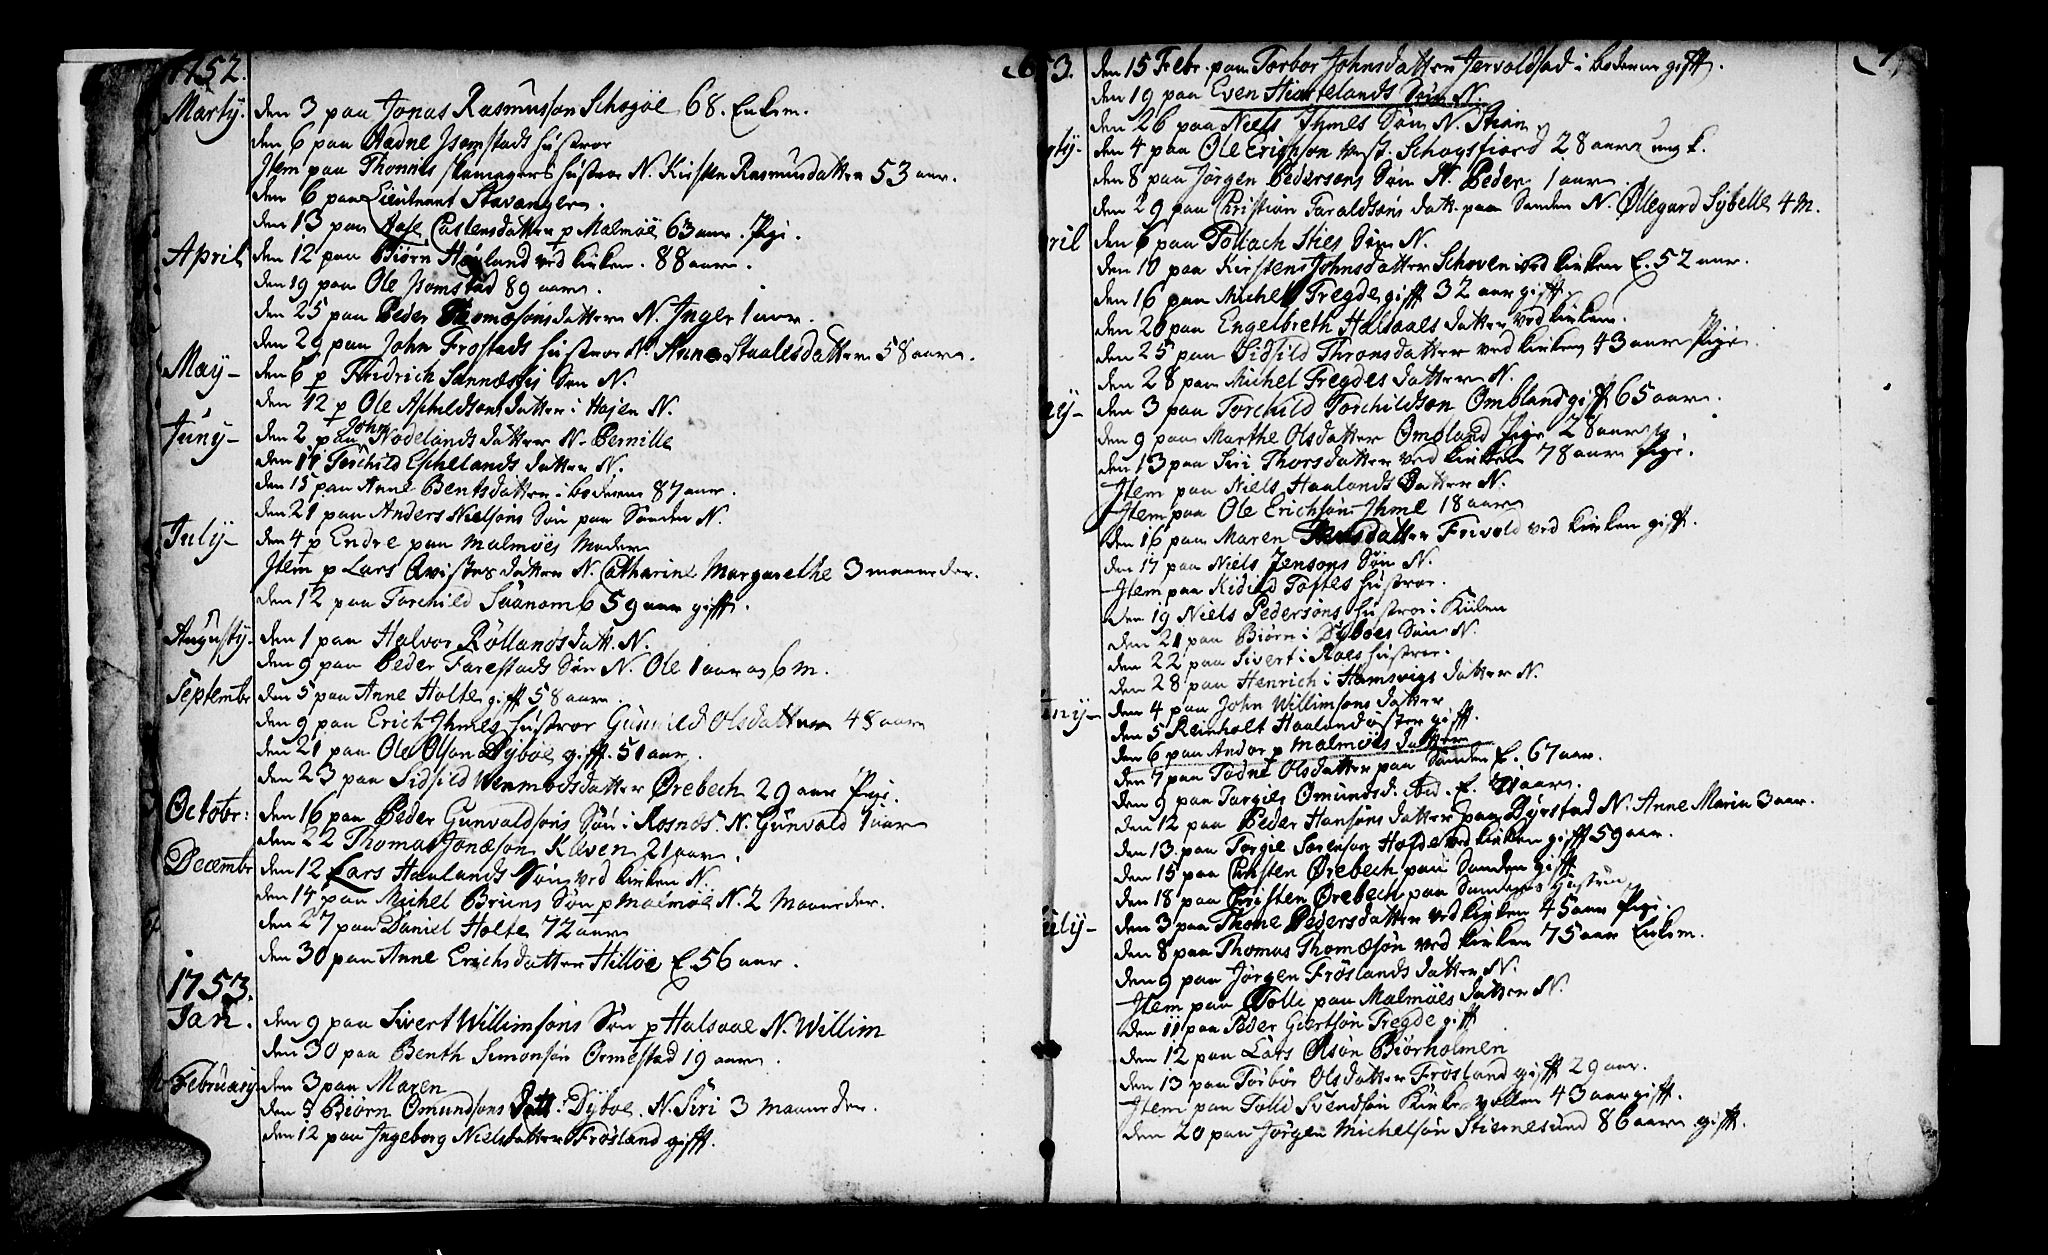 1752.
Marty. den 3 paa Jonas Rasmusson Schogøe 68. Enkem.
den 6 paa Aadne Jsomstads Hustroe
Jtem paa Thonnes skomagers hustroe N. Kirsten Rasmusdatter 53 aar.
den 6 paa Lieutenant Stavanger.
den 13 paa Aase Castensdatter p Malmøe 63 aar. Pige.
April den 12 paa Biørn Høyland ved kirken. 88 aar.
den 19 paa Ole Jsomstad 89 aar.
den 25 paa Peder Thomesøns datter N. Inger 1 aar.
den 29 paa John Frostads hustroe N. Anne Staalesdatter 58 aar.
May- den 6 p Fridrich Sannæssis Søn N.
den 12 p Ole Aschildsøns datter i Høien N.
Juny- den 2 paa John Nodelands datter N. Pernille
den 11 Torchild Eschelands datter N.
den 15 paa Anne Bentsdatter i boderne 87 aar.
den 21 paa Anders Nielsøns Søn paa Sanden N.
July- den 4 p Endre paa Malmøes Moder
Jtem p Lars Qvistes datter N. Catharine Margarethe 3 maaneder.
den 12 paa Torchild Saanom 59 aar gifft.
Augusty. den 1 paa Halvor Røllands datt. N.
den 9 paa Peder Farestads Søn N. Ole 1 aar og 6 m.
Septembr den 5 paa Anne Holte gifft 58 aar.
den 9 paa Erich Jhmes hustroe Gunnild Olsdatter 48 aar
den 21 paa Ole Olson Dyboe gifft. 51 aar.
den 23 paa Sidsild Wenmodsdatter Ørebech 29 aar Pige.
Octobr: den 16 paa Peder Gunvaldsøns Søn i Rosnøs. N. Gunvald 1 aar
den 22 Thomas Jonæson Kaaven 21 aar.
Decembr den 12 Lars Haalands Søn ved kirken N.
den 14 paa Michel Bruns Søn p Malmøe N. 2 Maaneder.
den 27 paa Daniel Holte 72 aar
den 30 paa Anne Erichsdatter Hilløe E. 56 aar.
1753.
Jan. den 9 paa Sivert Willimsøns Søn p Halsaae N. Willim
den 30 paa Benth Simonsøn Ormestad 19 aar.
February den 3 paa Maren
den 5 Biørn Omundsøns datt. Dyboe. N. Siri 3 Maaneder.
den 12 paa Ingeborg Nielsdatter Frøsland gifft.
53. den 15 Febr. paa Torbor Johnsdatter Jervoldstad i boderne gifft.
den 19 paa Even Hiortelands Søn N.
den 26 paa Niels Jhmes Søn N. Stian
den 4 paa Ole Erichson Schogsfiord 28 aar ung k.
den 8 paa Jørgen Pedersøns Søn N. Peder 1 aar
den 29 paa Christian Taraldsøns datt. paa Sanden N. Øllegard Sybelle 4 M.
ril den 6 paa Tollach Sties Søn N.
den 10 paa Kirsten Johnsdatter Schoven ved kirken E. 52 aar.
den 16 paa Michel Tregde gifft 32 aar gifft.
den 20 paa Engelbreth Halsaaes datter ved kirken.
den 25 paa Sidsild Thronsdatter ved kirken 43 aar Pige.
den 28 paa Michel Tregdes datter N.
ay- den 3 paa Torchild Torchildsøn Ombland gifft 65 aar
den 9 paa Marthe Olsdatter Omsland Pige 28 aar
den 13 paa Siri Thorsdatter ved kirken 78 aar Pige.
Jtem paa Niels Haalands Datter N.
Jtem paa Ole Erichsøn Jhme 18 aar
den 16 paa Maren datter Frivold ved kirken gifft.
den 17 paa Niels Jensøns Søn N.
Jtem paa Kidild Toftes hustroe.
den 19 Niels Pedersøns hustroe i Kiilen
den 21 paa Biørn i Dyboes Søn N.
den 22 paa Sivert i Raes hustroe.
den 28 paa Henrich i Hamsvigs datter N.
uny- den 4 paa John Willimsøns datter
den 5 Reinholt Haaland øster gifft.
den 6 paa Andor p Malmøes datter
den 7 paa Tødne Olsdatter paa Sanden E. 67 aar.
den 9 paa Targies Omundsd. ibid. E. 71 aar.
den 12 paa Peder Hansøns datter paa Dyrstad N. Anne Maria 3 aar.
den 13 paa Torgie Sørenson Hofde ved kirken gifft 59 aar.
den 15 paa Christen Ørebech paa Sanden gifft
den 18 paa Christen Ørebech paa Sandens Hustrue
uly- den 3 paa Thone Pedersdatter ved kirken 45 aar Pige.
den 8 paa Thomas Thomæsøn ved kirken 75 aar Enkem.
den 9 paa Jørgen Frøslands datter N.
Jtem paa Tolli paa Malmøes datter N.
den 11 paa Peder Giertsøn Tregde gifft
den 12 paa Lars Olsøn Biørholmen
den 13 paa Torbor Olsdatter Frøsland gifft 29 aar.
Jtem paa Tolli Svendsøn Kirkevollen 43 aar gifft.
den 20 paa Jørgen Michelsøn Stiernesund 86 aar gifft.